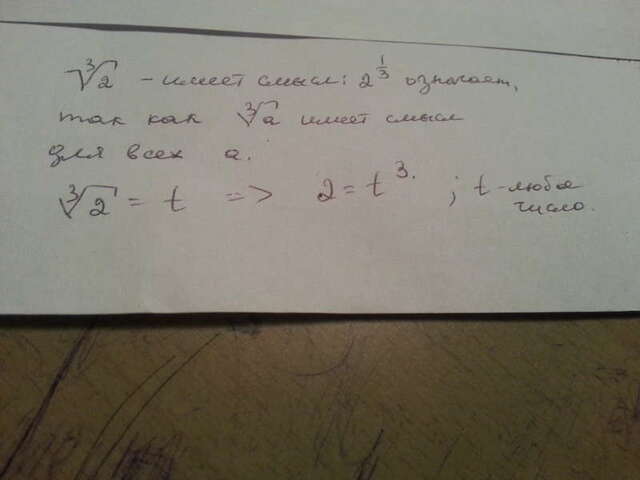 ∛2 - имеет смысл: 2^(1/3) означает,
так как ∛a имеет смысл
для всех a.
∛2 = t => 2 = t^3. ; t - любое
число.